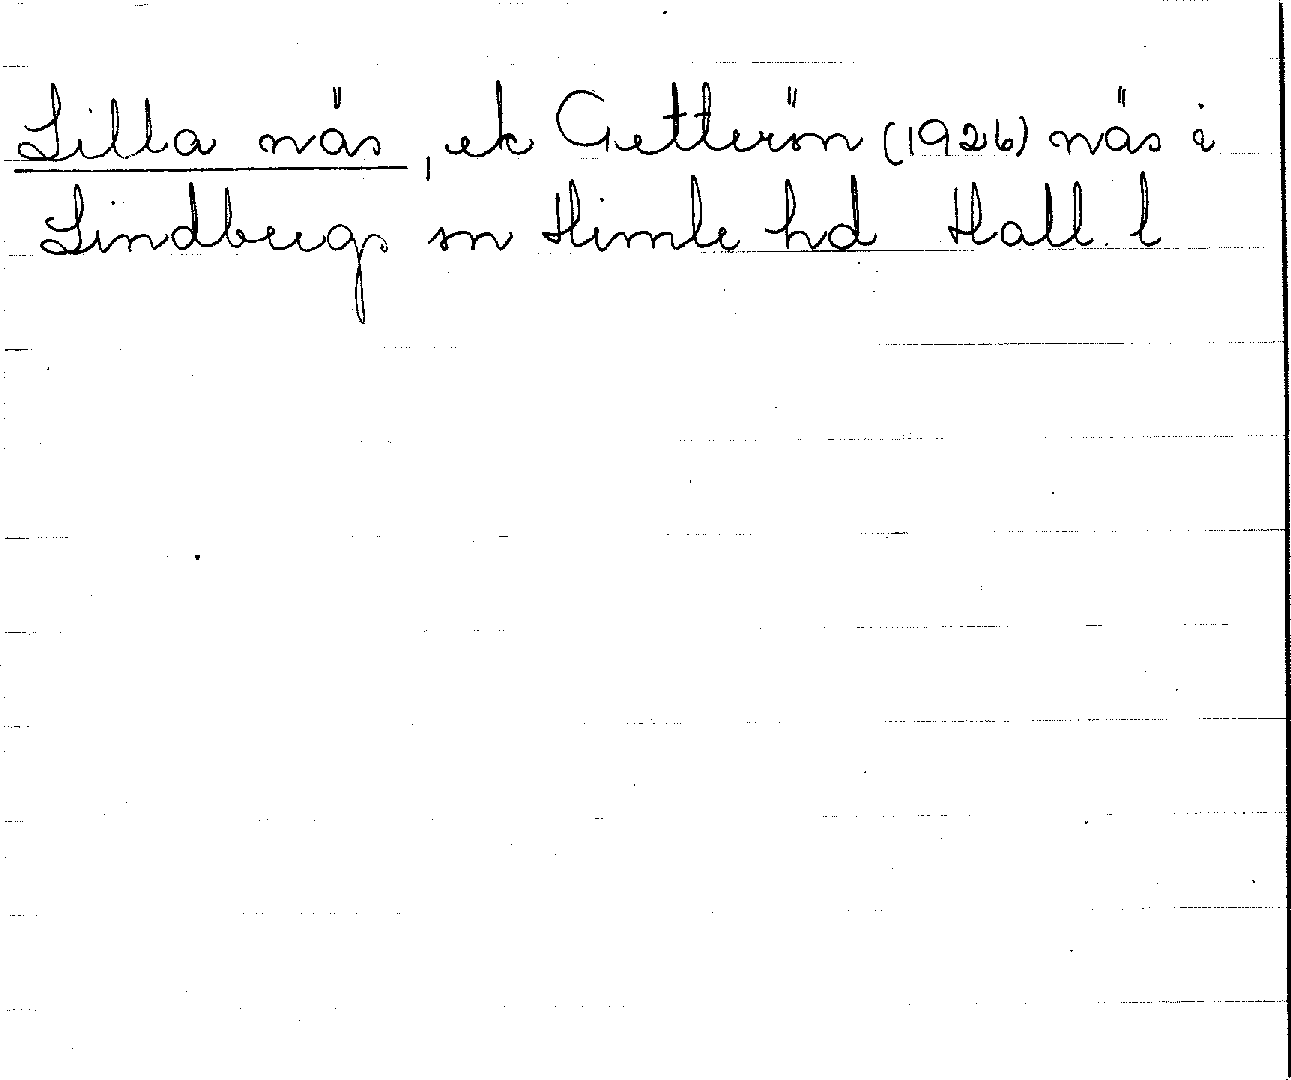 Lilla näs, ek Getterön (1926) näs i
Lindbergs sn Himle hd Hall. l